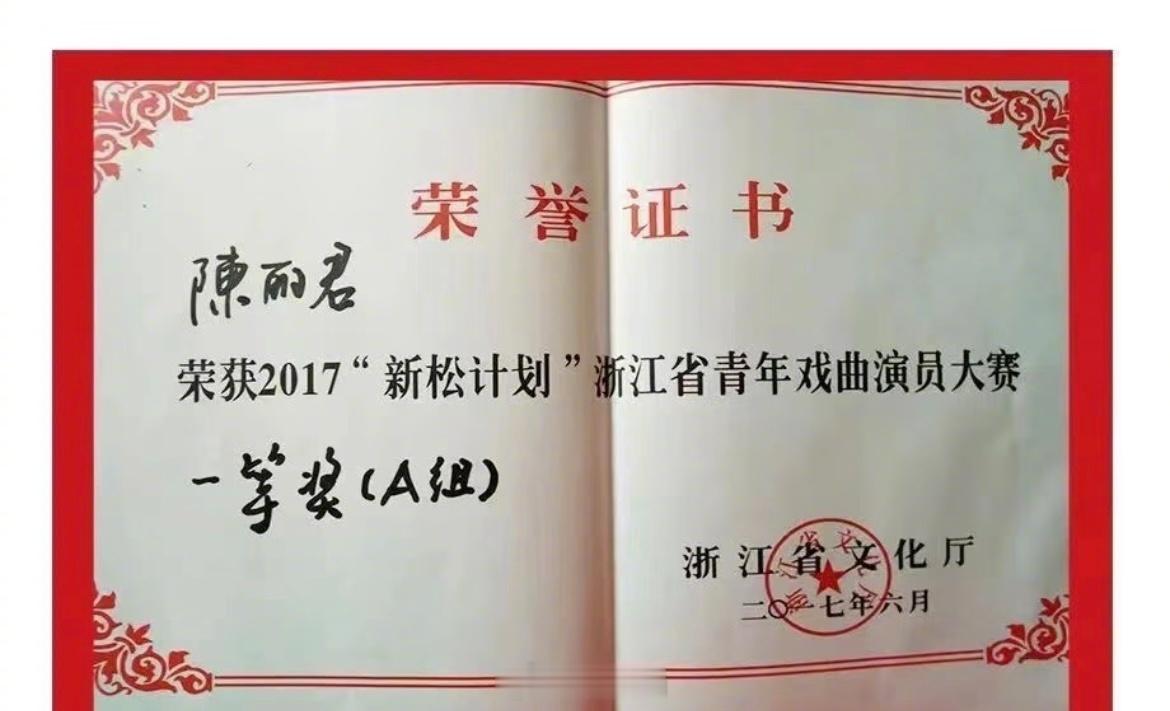 荣誉证书
陳丽君
荣获2017“新松计划”浙江省青年戏曲演员大赛
一等奖(A组)
浙江省文化厅
二〇一七年六月